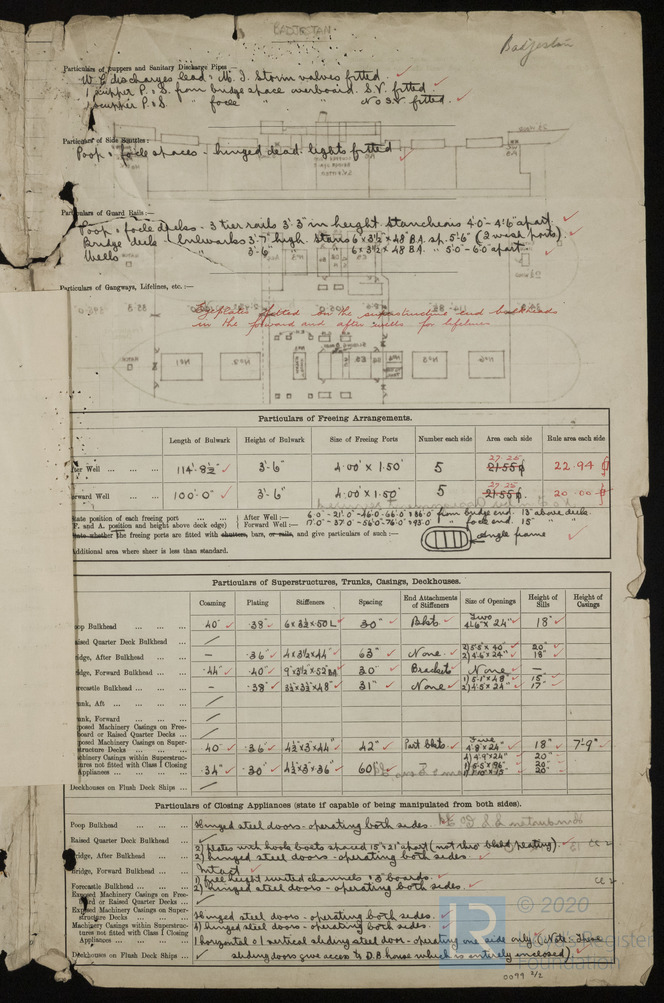 BADJESTAN
Badjestan
Particulars of Scuppers and Sanitary Discharge Pipes :—
W.C. discharges lead : M.I. storm valves fitted.
1 scupper P. & S. from bridge space overboard. S.V. fitted.
scupper P. & S. " focle " No S.V. fitted.
Particulars of Side Scuttles:—
Poop & focle spaces - hinged dead lights fitted
Particulars of Guard Rails:—
Poop & focle decks - 3 tier rails 3'.3" in height. Stanchions 4'.0 - 4'6" apart.
Bridge deck - bulwarks 3'.7" high. Stays 6 x 3½ x .48 B.A. sp. 5'-6" (2 wash ports).
Wells " 3'.6" " 6 x 3½ x .48 B.A. " 5'.0 - 6'.0 apart
Particulars of Gangways, Lifelines, etc. :—
Eyeplates fitted on the superstructure end bulkheads
in the forward and after wells for lifelines
Particulars of Freeing Arrangements.
Length of Bulwark Height of Bulwark Size of Freeing Ports Number each side Area each side Rule area each side
27.25
After Well ... ... ... 114'.8½" 3'.6" 4.00' x 1.50' 5 21.55 22.94
27.25
Forward Well ... ... 100'.0" 3'.6" 4.00' x 1.50' 5 21.55 20.00
State position of each freeing port ... ... ... After Well :— 6'.0 - 21'.0 - 46'.0 - 66'.0 & 86'.0 from bridge end. 13" above deck.
(F. and A. position and height above deck edge) Forward Well :— 17'.0 - 37'.0 - 56'.0 - 76'.0 & 95'.0 " focle end. 15" "
State whether the freeing ports are fitted with shutters, bars, or rails, and give particulars of such :— angle frame
Additional area where sheer is less than standard.
Particulars of Superstructures, Trunks, Casings, Deckhouses.
Coaming Plating Stiffeners Spacing End Attachments of Stiffeners Size of Openings Height of Sills Height of Casings
Poop Bulkhead ... ... ... .40" .38" 6 x 3½ x .50 L 30" Bkts Two 4'.6" x 24" 18"
Raised Quarter Deck Bulkhead ...
Bridge, After Bulkhead ... ... — .36" 4 x 3½ x .44 63" None 2) 5'.5" x 40" 20" 2) 4'.6" x 24" 18"
Bridge, Forward Bulkhead ... .44" .40" 9" x 3½ x .52 BA 30" Brackets None —
Forecastle Bulkhead ... ... — .38" 3½ x 3½ x .48" 31" None 1) 5'.1" x 48" 15" 2) 4'.5 x 24" 17"
Trunk, Aft ... ... ...
Trunk, Forward ... ... ...
Exposed Machinery Casings on Freeboard or Raised Quarter Decks ...
Exposed Machinery Casings on Superstructure Decks ... .40" .36" 4½ x 3 x .44" 42" Part bkts. Five 4'.8 x 24" 18" 7'-9"
Machinery Casings within Superstructures not fitted with Class I Closing Appliances ... .34" .30" 4½ x 3 x .36" 60" 4) 4'.9" x 24" 20" 1) 5'.5 x 36" 20" 20"
Deckhouses on Flush Deck Ships ...
Particulars of Closing Appliances (state if capable of being manipulated from both sides).
Poop Bulkhead ... ... ... Hinged steel doors - operating both sides.
Raised Quarter Deck Bulkhead ...
Bridge, After Bulkhead ... ... 2) plates with hook bolts spaced 15" x 21" apart (not thro' bkhd plating).
2) hinged steel doors - operating both sides.
Bridge, Forward Bulkhead ... Intact
Forecastle Bulkhead ... ... 1) full height riveted channels & 3" boards.
2) hinged steel doors - operating both sides.
Exposed Machinery Casings on Freeboard or Raised Quarter Decks ...
Exposed Machinery Casings on Superstructure Decks ... Hinged steel doors - operating both sides.
Machinery Casings within Superstructures not fitted with Class I Closing Appliances ... 4) hinged steel doors - operating both sides.
1 horizontal & 1 vertical sliding steel door - operating one side only (Note. These
Deckhouses on Flush Deck Ships ... sliding doors give access to D.B. house which is entirely enclosed).
© 2020
Lloyd's Register
Foundation
0099 2/2